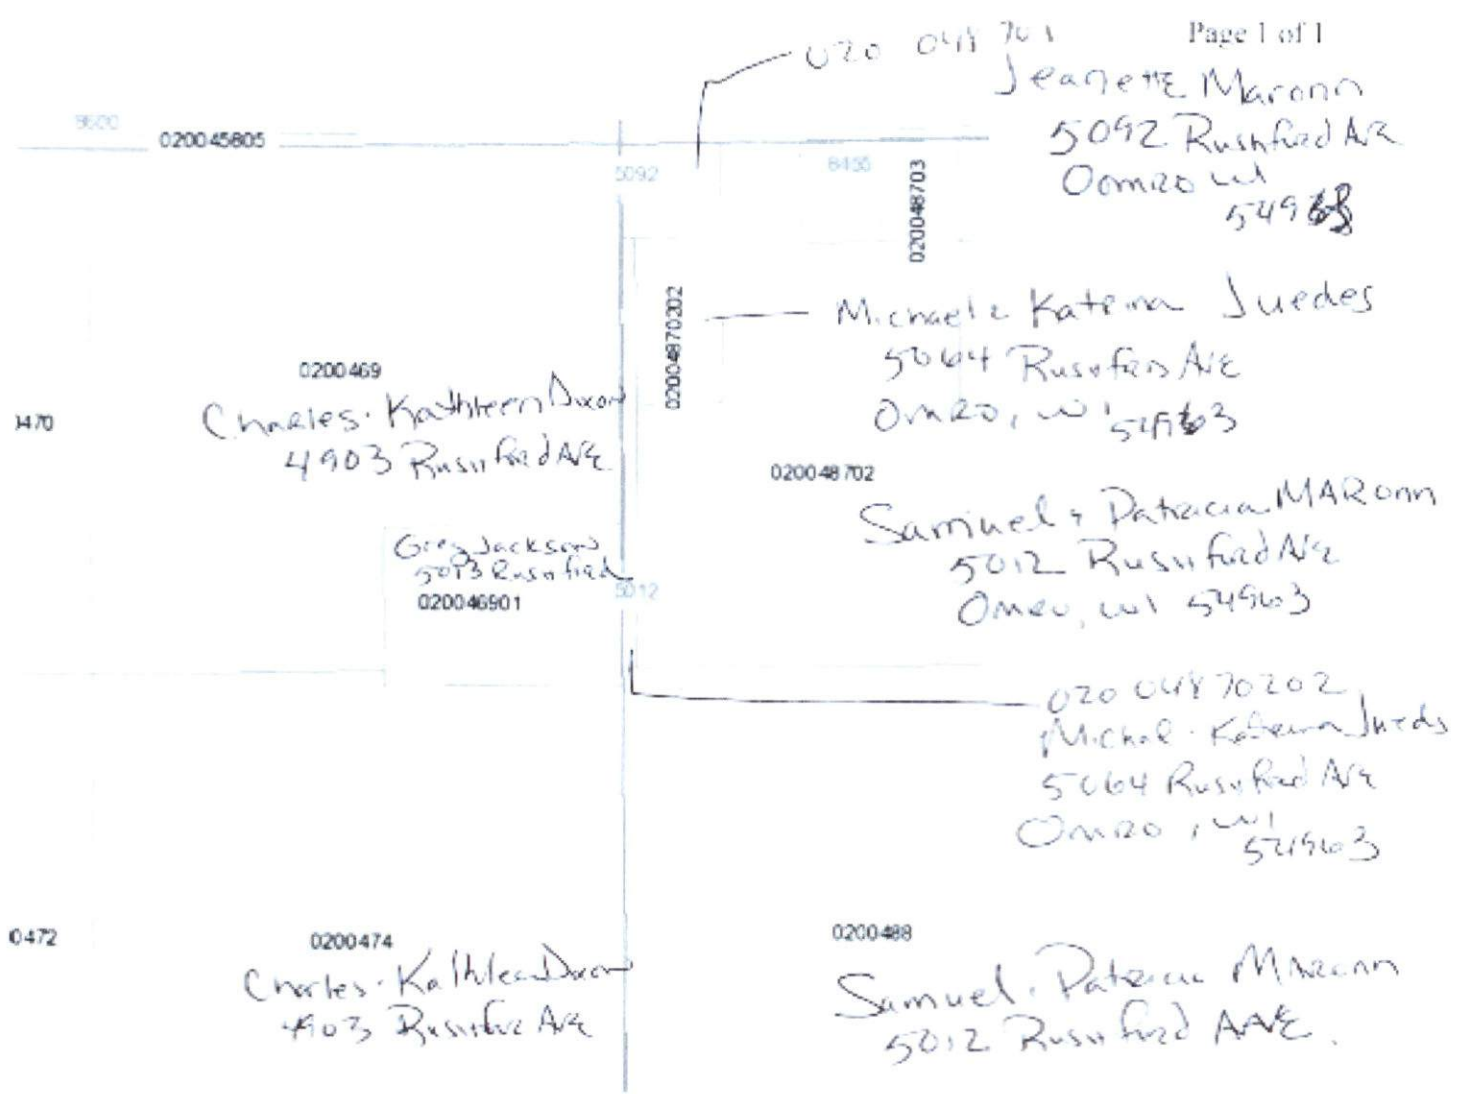 Page 1 of 1
020 048 701
Jeanette Maronn
5092 Rushford Ave
Oomro WI
54963
8600
020045805
5092
8455
020048703
0200487 0202
Michael & Katrina Juedes
5064 Rushford Ave
Omro, WI 54963
0200469
Charles · Kathleen Dixon
4903 Rushford Ave
1470
020048702
Samuel & Patricia MARonn
5012 Rushford Ave
Omro, WI 54963
Greg Jackson
5013 Rushford
020046901
5012
020 04870202
Michal · Katrina Jueds
5064 Rushford Ave
Omro, WI
54963
0472
0200474
Charles · Kathleen Dixon
4903 Rushford Ave
0200488
Samuel · Patricia Maronn
5012 Rushford AVE.